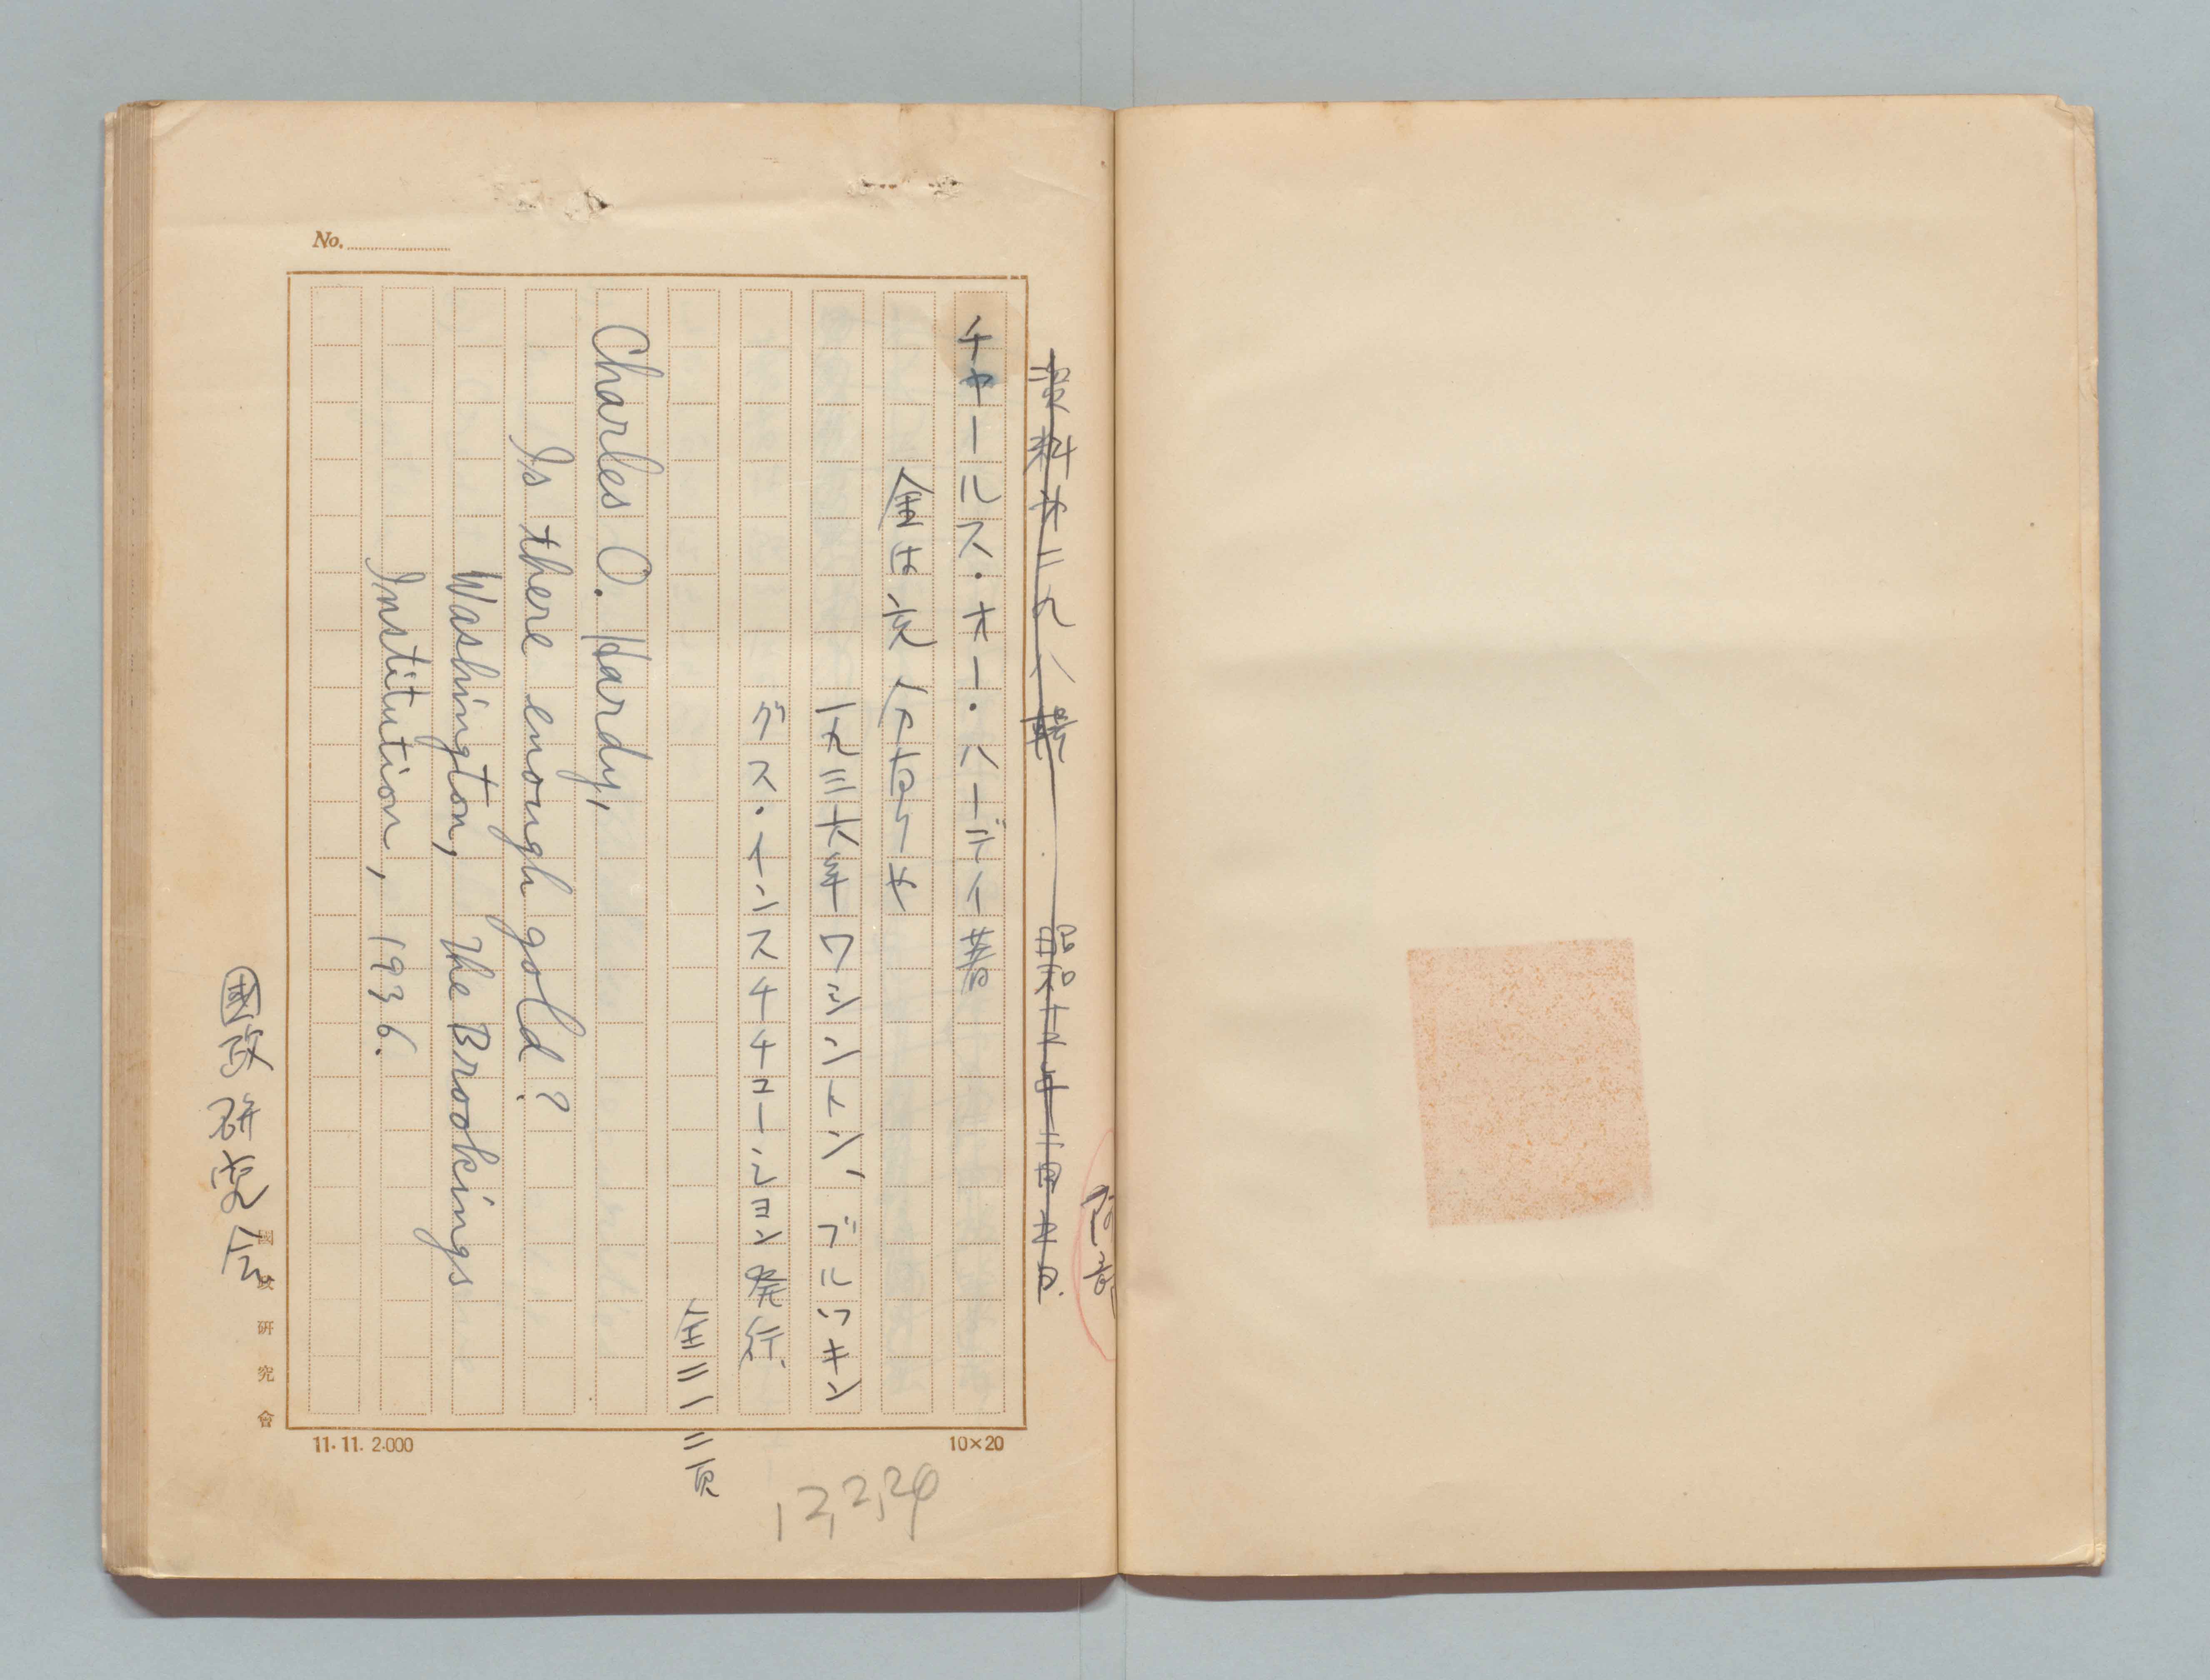 資料
昭和十二年
チャールス・オー・ハーディ著
金は充分有りや
一九三六年ワシントン、ブルツキン
グス・インスチチューション発行、
全二一二頁
Charles O. Hardy,
Is there enough gold?
Washington, The Brookings
Institution, 1936.
國政研究会
No.
國政研究會
11.11. 2.000
10×20